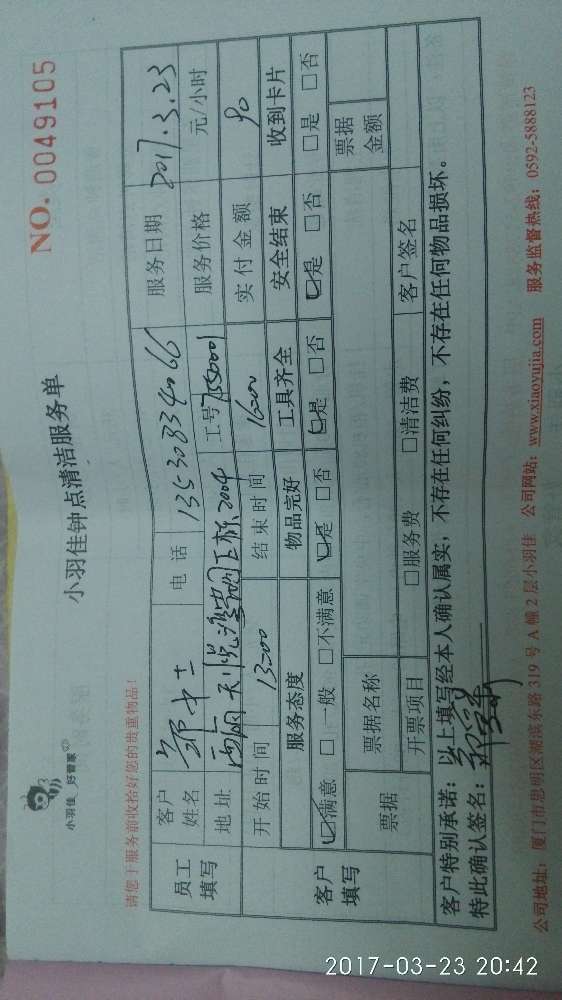 小羽佳 好管家
小羽佳钟点清洁服务单
NO. 0049105
请您于服务前收拾好您的贵重物品!
员工填写 客户姓名 电话 13530834066 服务日期 2017.3.23
地址 2004 工号 服务价格 元/小时
开始时间 13:00 结束时间 16:00 实付金额 90
客户填写 服务态度 物品完好 工具齐全 安全结束 收到卡片
☑满意 □一般 □不满意 ☑是 □否 ☑是 □否 ☑是 □否 □是 □否
票据 票据名称 票据金额
开票项目 □服务费 □清洁费 客户签名
客户特别承诺:以上填写经本人确认属实,不存在任何纠纷,不存在任何物品损坏。
特此确认签名:
公司地址:厦门市思明区湖滨东路319号A幢2层小羽佳 公司网站:www.xiaoyujia.com 服务监督热线:0592-5888123
2017-03-23 20:42